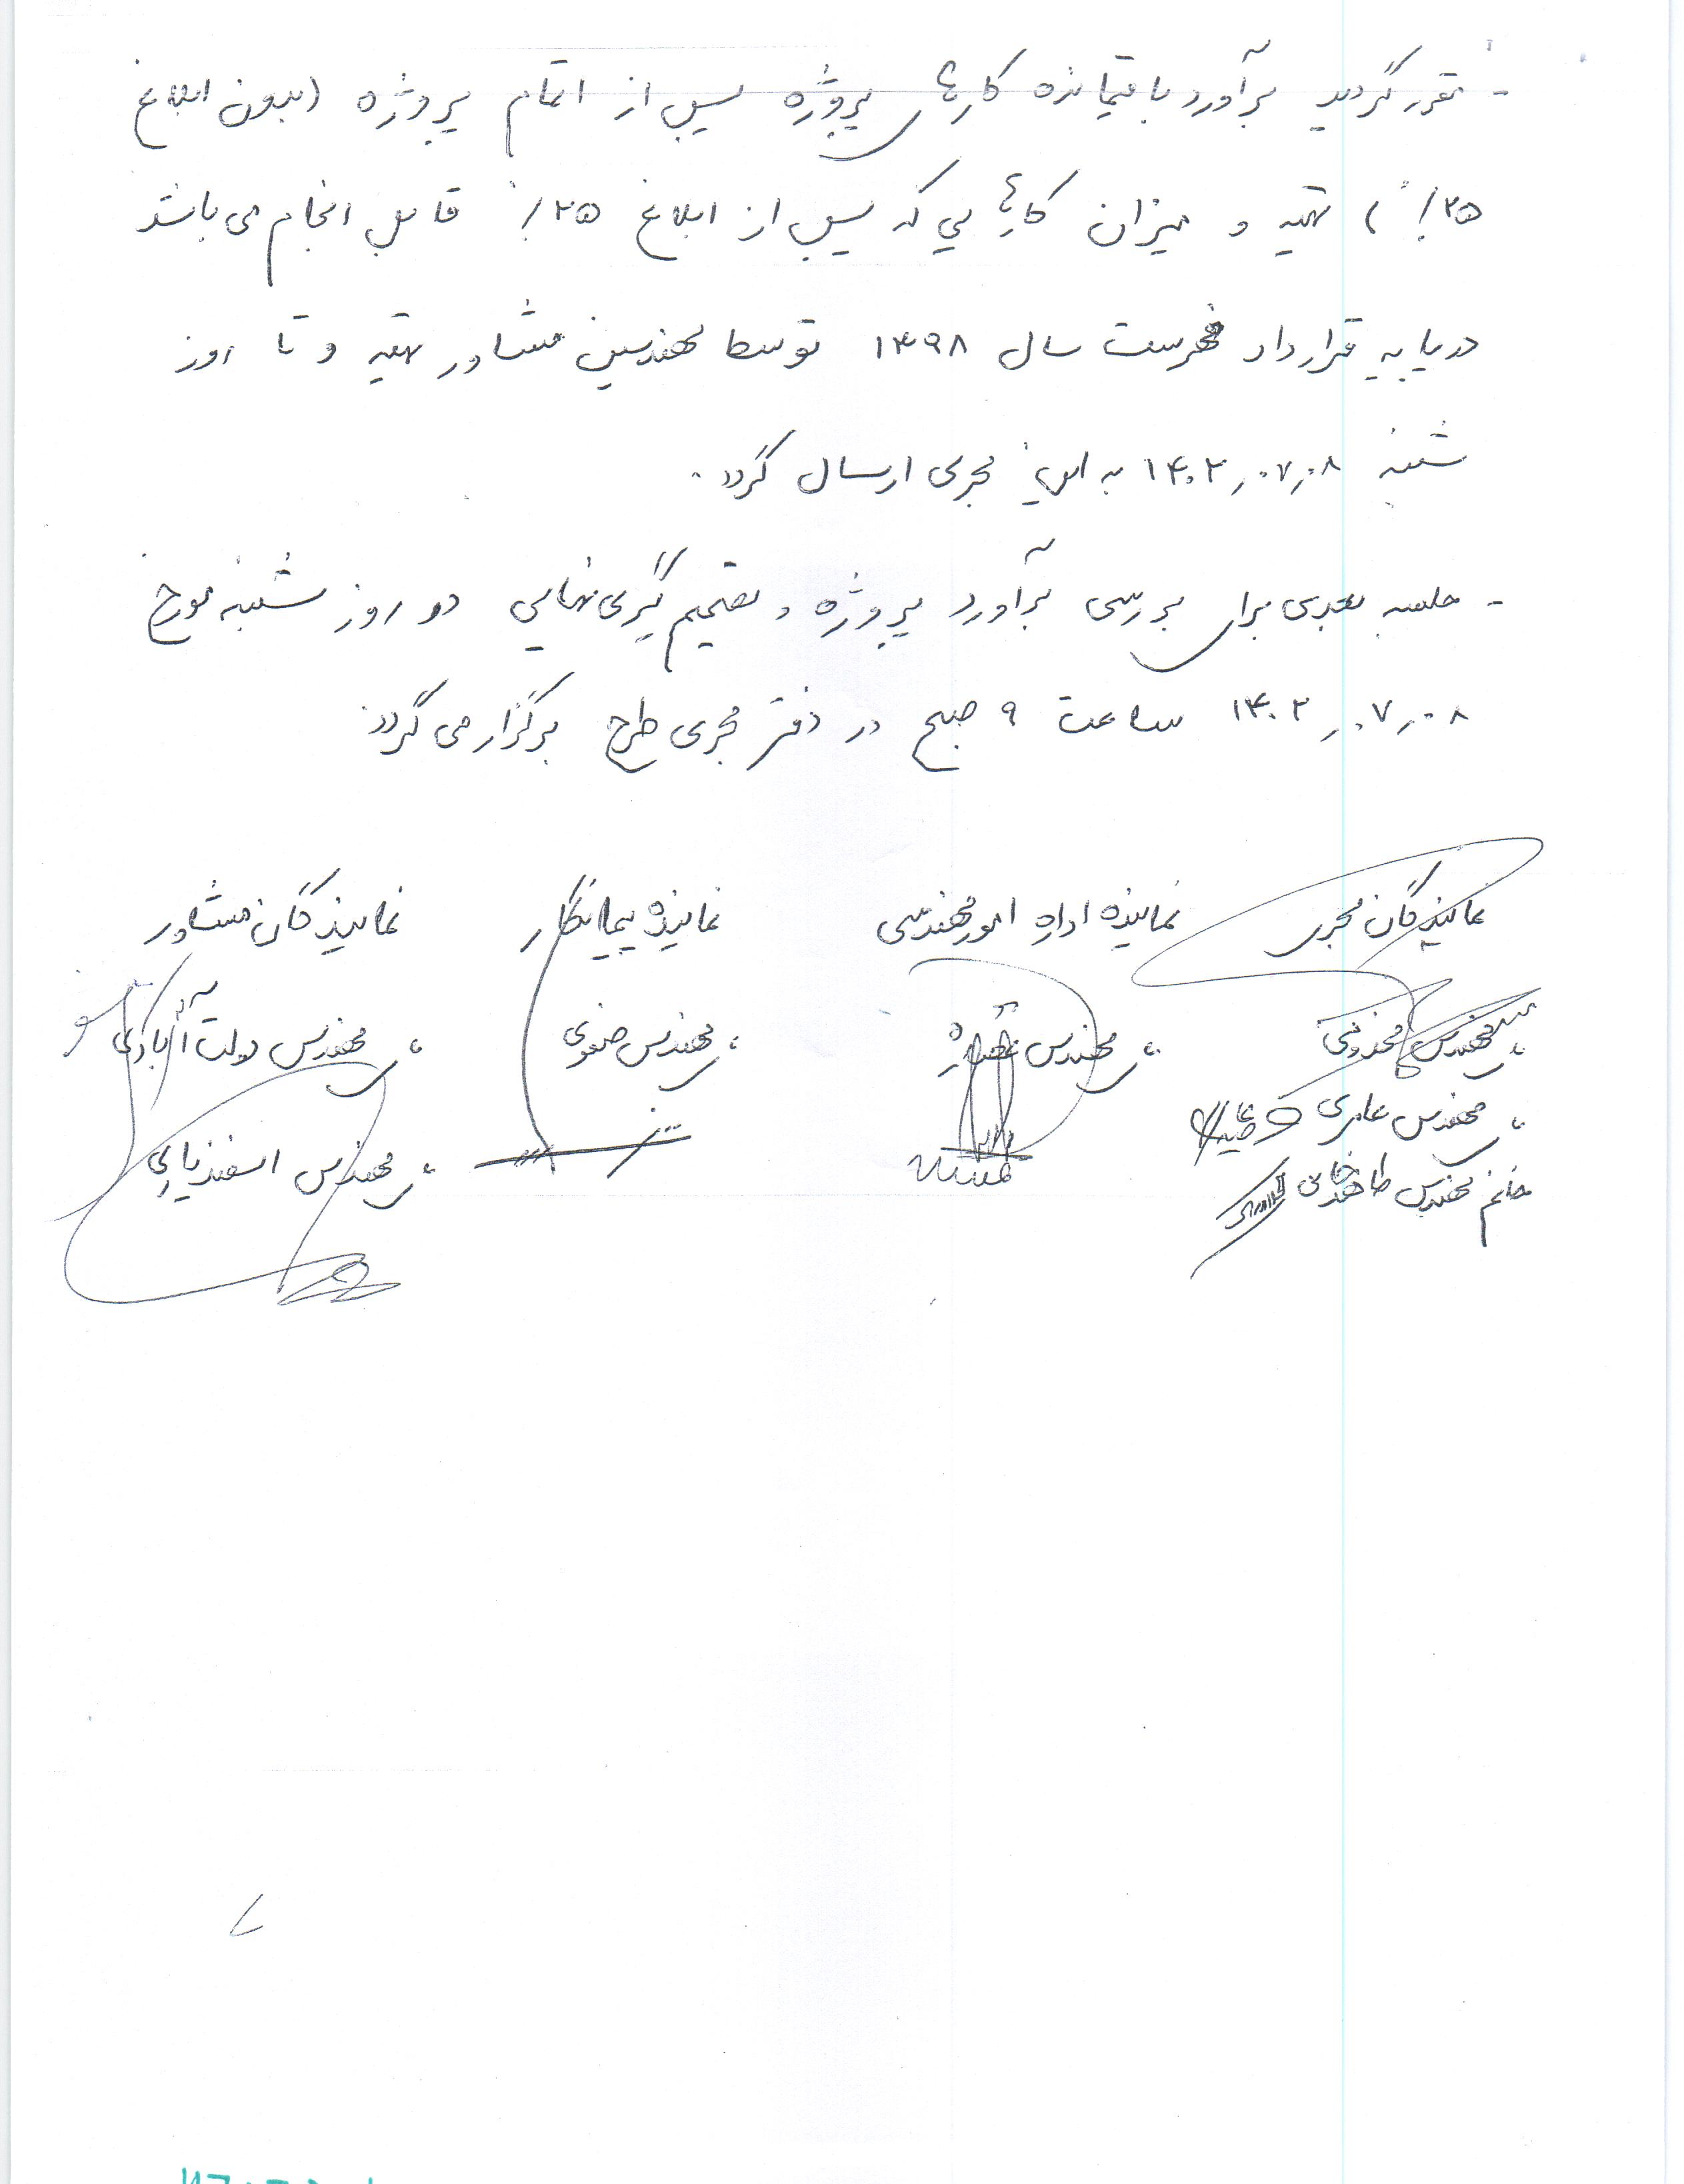 - مقرر گردید برآورد باقیمانده کارهای پروژه پس از اتمام پروژه (بدون ابلاغ
۲۵٪) تهیه و میزان کارهایی که پس از ابلاغ ۲۵٪ قابل انجام می باشد
در پایه قرارداد فهرست سال ۱۳۹۸ توسط مهندسین مشاور تهیه و تا روز
شنبه ۱۴۰۲/۰۷/۰۸ به این مجری ارسال گردد.
- جلسه بعدی برای بررسی برآورد پروژه و تصمیم گیری نهایی در روز شنبه مورخ
۱۴۰۲/۰۷/۰۸ ساعت ۹ صبح در دفتر مجری طرح برگزار می گردد.
نمایندگان مجری نماینده اداره امور مهندسی نماینده پیمانکار نمایندگان مشاور
مهندس مخدومی مهندس مهندس صفوی مهندس دولت آبادی
مهندس عامری مهندس اسفندیاری
خانم مهندس طاهرخانی